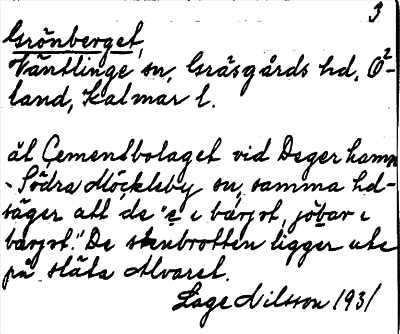 3
Grönberget,
Väntlinge sn, Gräsgårds hd, Ö-
land, Kalmar l.
ål Cementbolaget vid Degerhamn
- Södra Möckleby sn, samma hd-
säger att de "e i bärjst, jobar i
bärjst." De stenbrotten ligger ute
på släta Alvaret.
Lage Nilsson 1931